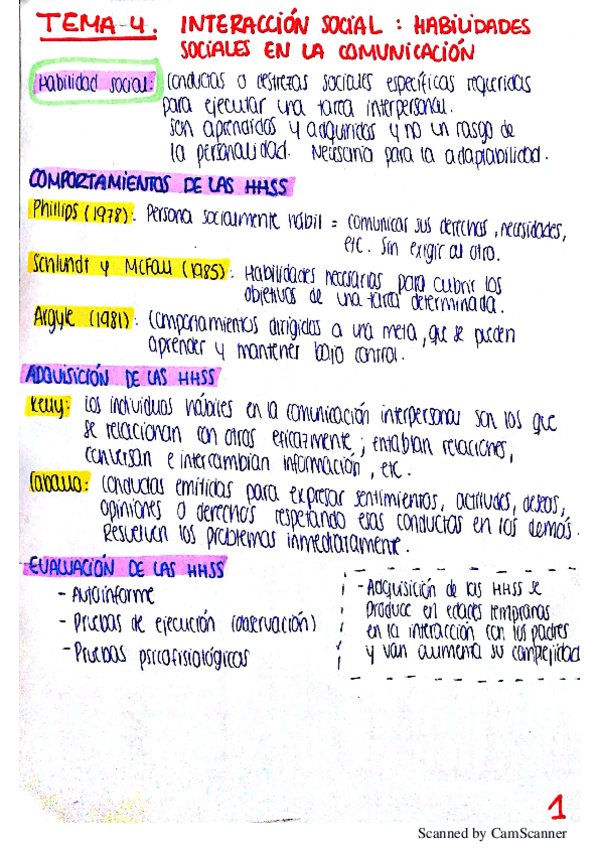 TEMA 4. INTERACCIÓN SOCIAL : HABILIDADES
SOCIALES EN LA COMUNICACIÓN
Habilidad social: Conductas o destrezas sociales específicas requeridas
para ejecutar una tarea interpersonal.
Son aprendidas y adquiridas y no un rasgo de
la personalidad. Necesaria para la adaptabilidad.
COMPORTAMIENTOS DE LAS HHSS
Phillips (1978): Persona socialmente hábil = comunicar sus derechos, necesidades,
etc. Sin exigir al otro.
Schlundt y McFall (1985): Habilidades necesarias para cubrir los
objetivos de una tarea determinada.
Argyle (1981): Comportamientos dirigidos a una meta, que se pueden
aprender y mantener bajo control.
ADQUISICIÓN DE LAS HHSS
Kelly: Los individuos hábiles en la comunicación interpersonal son los que
se relacionan con otros eficazmente; entablan relaciones,
conversan e intercambian información, etc.
Caballo: Conductas emitidas para expresar sentimientos, actitudes, deseos,
opiniones o derechos respetando esas conductas en los demás.
Resuelven los problemas inmediatamente.
EVALUACIÓN DE LAS HHSS
- Autoinforme
- Pruebas de ejecución (observación)
- Pruebas psicofisiológicas
- Adquisición de las HHSS se
produce en edades tempranas
en la interacción con los padres
y van aumenta su complejidad
1
Scanned by CamScanner